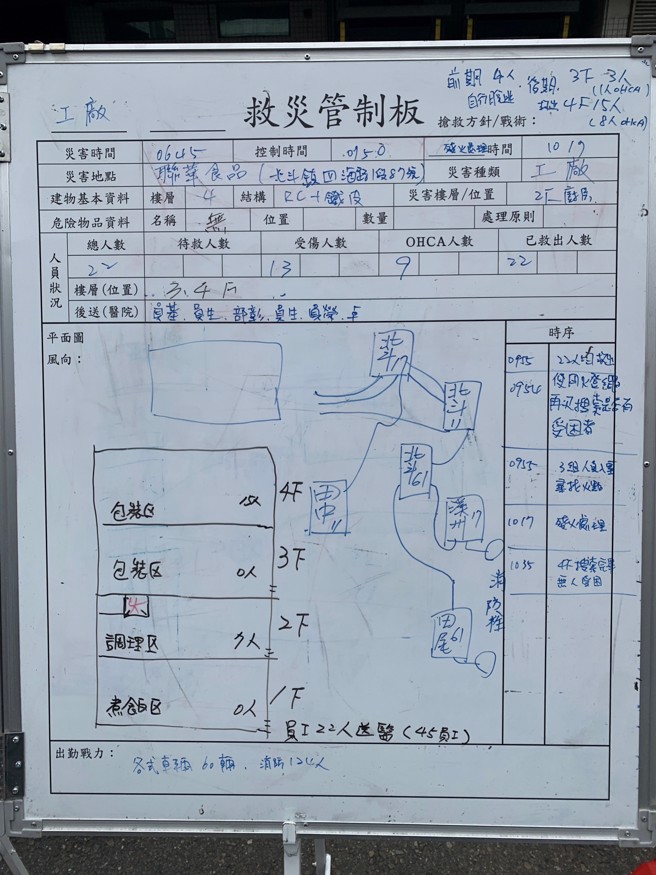 前期 4人 後期 3F 3人
(1人OHCA)
自行脫逃 4F 15人
(8人OHCA)
工廠
救災管制板
搶救方針/戰術：
災害時間 0645 控制時間 0950 殘火處理時間 1019
災害地點 聯華食品(北斗鎮四海路1段87號) 災害種類 工廠
建物基本資料 樓層 4 結構 RC+鐵皮 災害樓層/位置 2F 廚房
危險物品資料 名稱 無 位置 數量 處理原則
人員狀況
總人數 待救人數 受傷人數 OHCA人數 已救出人數
22 13 9 22
樓層(位置) 3.4F
後送(醫院) 員基.員生.部彰.員生.員榮.卓
平面圖
風向：
北斗17
北斗11
北斗61
田中11
溪州17
田尾61
消防栓
4F 包裝区 15人
3F 包裝区 0人
火
2F 調理区 7人
1F 煮飯区 0人
員工22人送醫(45員工)
時序
0955 22人均救出
0954 使用
再次搜索是否有
受困者
0955 3組人員入室
尋找火點
1017 殘火處理
1035 4F搜索完畢
無人受困
出勤戰力：
各式車輛60輛．消防124人